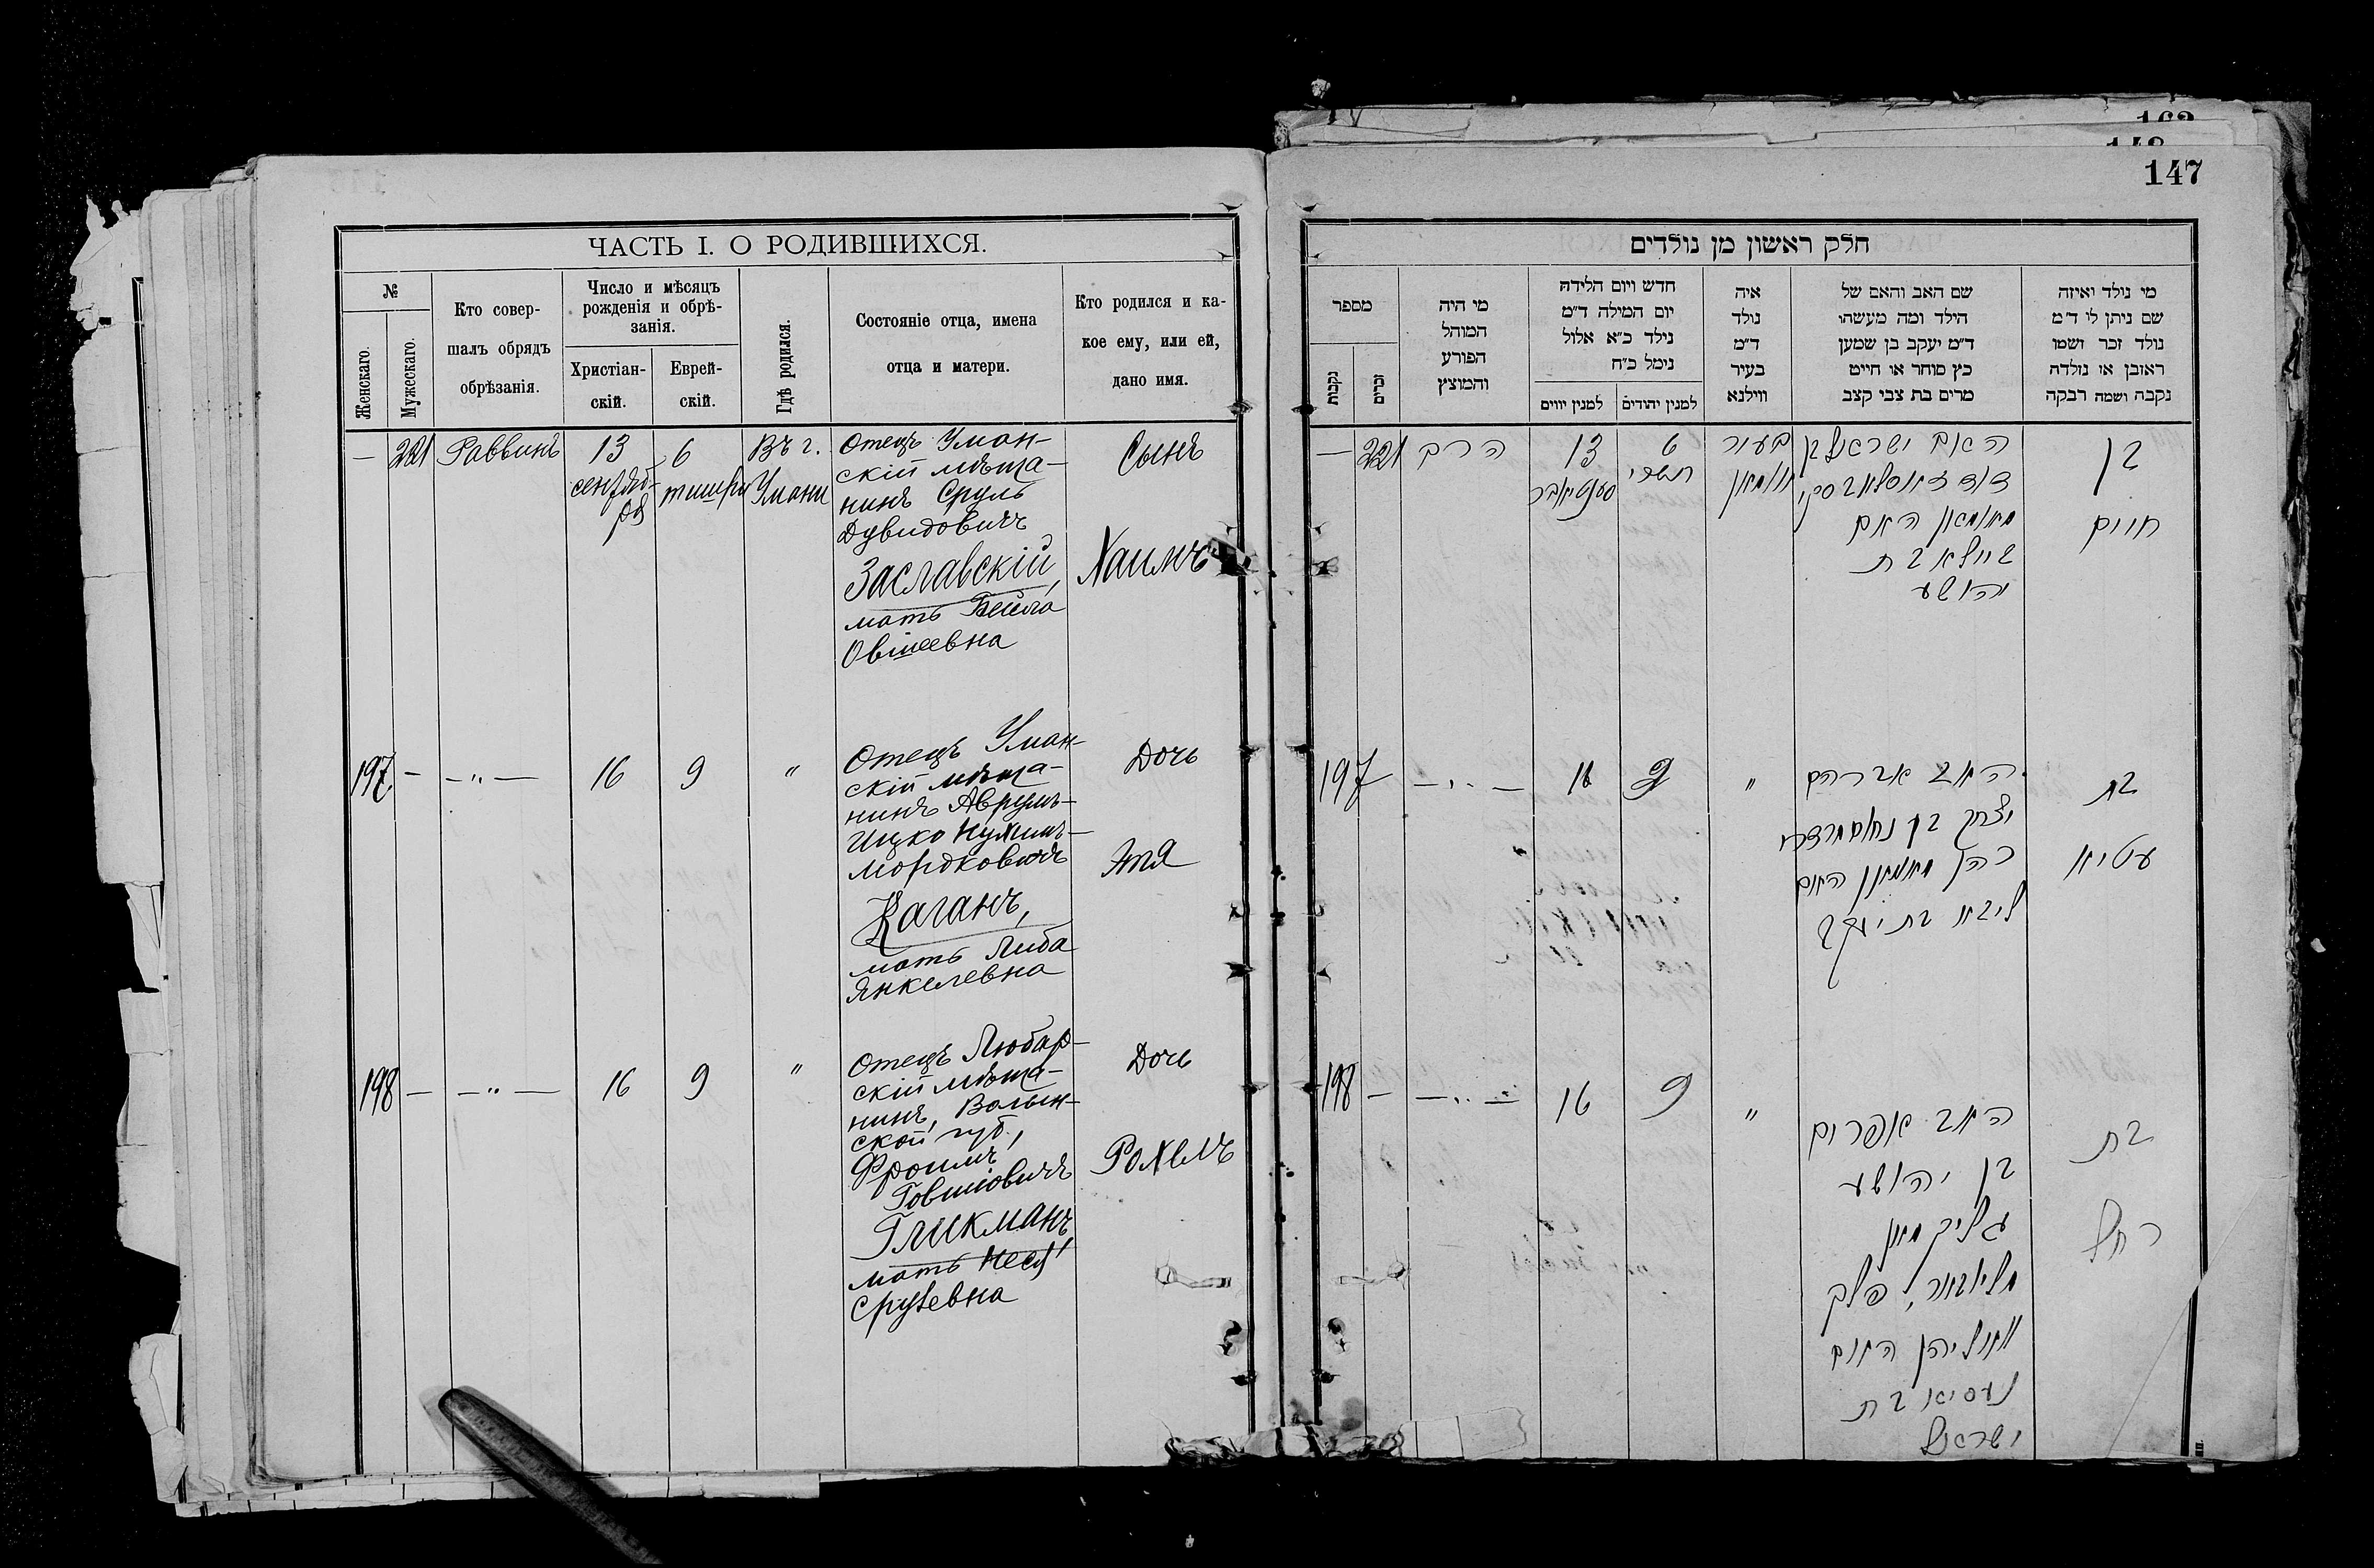 163
148
147
ЧАСТЬ I. О РОДИВШИХСЯ.
№
Женскаго.
Мужескаго.
Кто совер-
шалъ обрядъ
обрѣзанія.
Число и мѣсяцъ
рожденія и обрѣ-
занія.
Христіан-
скій.
Еврей-
скій.
Гдѣ родился.
Состояніе отца, имена
отца и матери.
Кто родился и ка-
кое ему, или ей,
дано имя.
— 221 Раввинъ 13 6 Въ г.
сентяб- тишри Умани
ря
Отецъ Уман-
скій мѣща-
нинъ Сруль
Дувидовичъ
Заславскій,
мать Бейла
Овшеевна
Сынъ
Хаимъ
197 — —„— 16 9 „
Отецъ Уман-
скій мѣща-
нинъ Аврумъ-
Ицко Нухимъ-
Мордковичъ
Каганъ,
мать Либа
Янкелевна
Дочь
Этя
198 — —„— 16 9 „
Отецъ Любар-
скій мѣща-
нинъ, Волын-
ской губ.,
Фроимъ
Говшіовичъ
Гликманъ,
мать Неся
Срулевна
Дочь
Рохель
חלק ראשון מן נולדים
מספר
נקבות
זכרים
מי היה
המוהל
הפורע
והמוצץ
חדש ויום הלידה
יום המילה ד״מ
נילד כ״א אלול
נימל כ״ח
למנין יווים
למנין יהודים
איה
נולד
ד״מ
בעיר
ווילנא
שם האב והאם של
הילד ומה מעשהו
ד״מ יעקב בן שמען
כץ סוחר או חייט
מרים בת צבי קצב
מי נולד ואיזה
שם ניתן לי ד״מ
נולד זכר ושמו
ראובן או נולדה
נקבה ושמה רבקה
— 221 הרב 13 6 בעיר
סענטיאבר תשרי אומאן
האב ישראל בן
דוד זאסלאבסקי
מאומאן האם
ביילא בת
יהושע
בן
חיים
197 — „ — 16 9 „
האב אברהם
יצחק בן נחום מרדכי
כהן מאומאן האם
ליבא בת יעקב
בת
עטיא
198 — — „ — 16 9 „
האב אפרים
בן יהושע
גליקמאן
מליובאר, פלך
וואלין האם
נעסיא בת
ישראל
בת
רחל